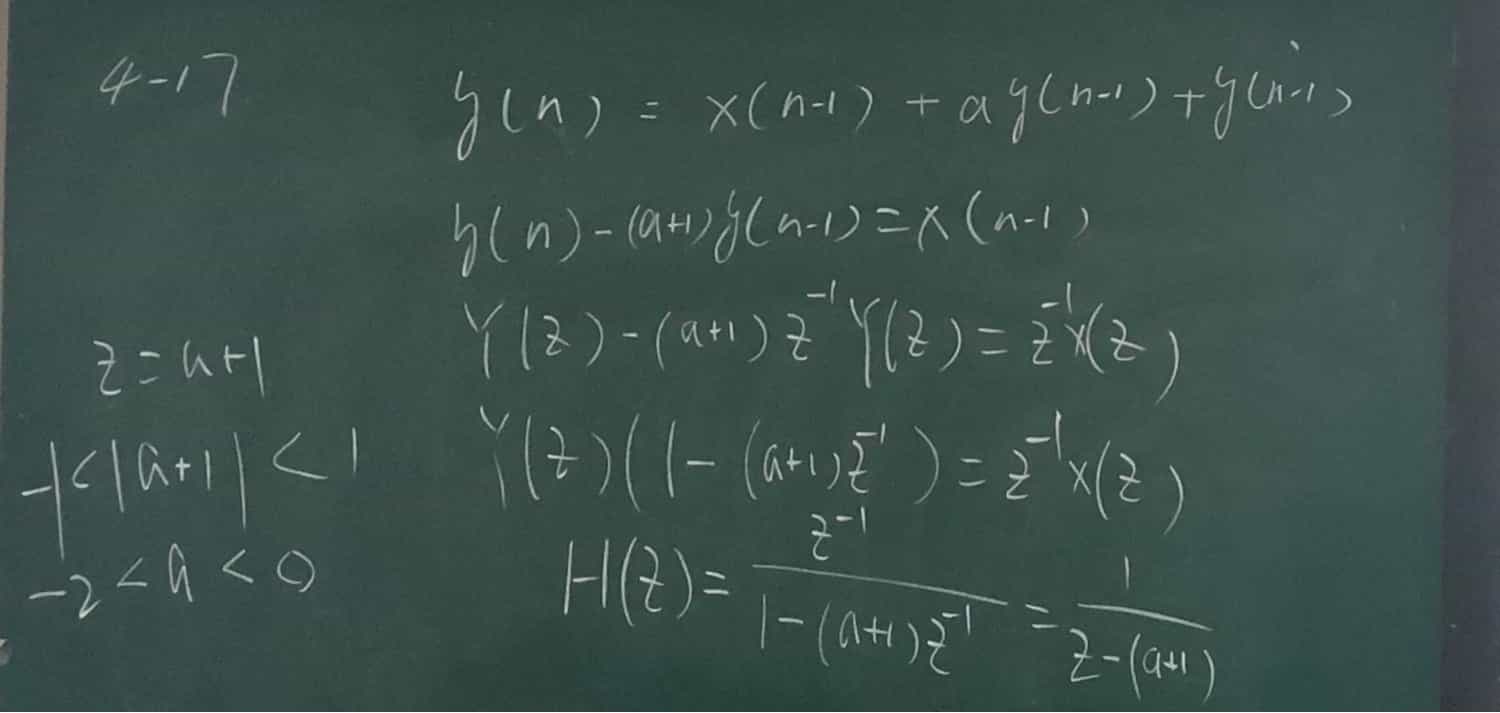 4-17
y(n) = x(n-1) + ay(n-1) + y(n-1)
y(n)-(a+1)y(n-1)=x(n-1)
Y(z)-(a+1)z⁻¹Y(z)=z⁻¹X(z)
z=a+1
Y(z)(1-(a+1)z⁻¹)=z⁻¹X(z)
-1<|a+1|<1
H(z)= z⁻¹/(1-(a+1)z⁻¹) = 1/(z-(a+1))
-2<a<0